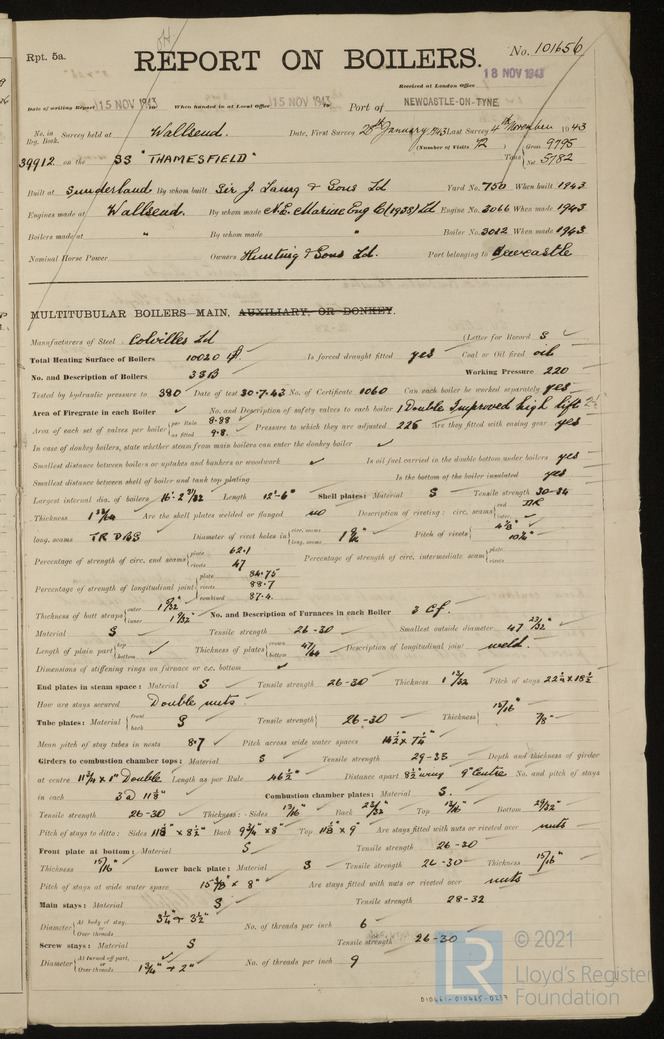 Rpt. 5a.
REPORT ON BOILERS.
No. 101656
Received at London Office 18 NOV 1943
Date of writing Report 15 NOV 1943 When handed in at Local Office 15 NOV 1943 Port of NEWCASTLE-ON-TYNE
No. in Reg. Book. Survey held at Wallsend. Date, First Survey 28th January 1943 Last Survey 4th November 1943
(Number of Visits 72) Gross 9795
39912 on the SS "THAMESFIELD" Tons Net 5782
Built at Sunderland By whom built Sir J. Laing & Sons Ld Yard No. 750 When built 1943
Engines made at Wallsend. By whom made N.E. Marine Eng Co (1938) Ld Engine No. 3066 When made 1943
Boilers made at " By whom made " Boiler No. 3012 When made 1943
Nominal Horse Power Owners Hunting & Sons Ld. Port belonging to Newcastle
MULTITUBULAR BOILERS—MAIN, AUXILIARY, OR DONKEY.
Manufacturers of Steel Colvilles Ld (Letter for Record S
Total Heating Surface of Boilers 10020 Is forced draught fitted yes Coal or Oil fired oil
No. and Description of Boilers 3 SB Working Pressure 220
Tested by hydraulic pressure to 380 Date of test 30.7.43 No. of Certificate 1060 Can each boiler be worked separately yes
Area of Firegrate in each Boiler ✓ No. and Description of safety valves to each boiler 1 Double Improved high lift
Area of each set of valves per boiler per Rule 8.88 as fitted 9.8. Pressure to which they are adjusted 225 Are they fitted with easing gear yes
In case of donkey boilers, state whether steam from main boilers can enter the donkey boiler ✓
Smallest distance between boilers or uptakes and bunkers or woodwork ✓ Is oil fuel carried in the double bottom under boilers yes
Smallest distance between shell of boiler and tank top plating Is the bottom of the boiler insulated yes
Largest internal dia. of boilers 16'-2 31/32 Length 12'-6" Shell plates: Material S Tensile strength 30-34
Thickness 1 28/64 Are the shell plates welded or flanged no Description of riveting: circ. seams end DR inter.
long. seams TR DBS Diameter of rivet holes in circ. seams long. seams Pitch of rivets
Percentage of strength of circ. end seams plate 62.1 rivets 47 Percentage of strength of circ. intermediate seam plate rivets
Percentage of strength of longitudinal joint plate 84.75 rivets 88.7 combined 87.4
Thickness of butt straps outer 1 9/32 inner 1 9/32 No. and Description of Furnaces in each Boiler 3 Cf.
Material S Tensile strength 26-30 Smallest outside diameter 47 23/32"
Length of plain part top bottom ✓ Thickness of plates crown bottom 47/64 Description of longitudinal joint weld.
Dimensions of stiffening rings on furnace or c.c. bottom ✓
End plates in steam space: Material S Tensile strength 26-30 Thickness 1 13/32 Pitch of stays
How are stays secured Double nuts.
Tube plates: Material front back S Tensile strength 26-30 Thickness 15/16" 7/8"
Mean pitch of stay tubes in nests 8.7 Pitch across wide water spaces 14 1/2 x 7 1/4"
Girders to combustion chamber tops: Material S Tensile strength 29-33 Depth and thickness of girder
at centre 11 3/4 x 1" Double Length as per Rule 46 1/2" Distance apart 8 1/2 wing 9" Centre No. and pitch of stays
in each 3 @ 11 1/8" Combustion chamber plates: Material S.
Tensile strength 26-30 Thickness: Sides 13/16" Back 23/32" Top 13/16" Bottom 29/32"
Pitch of stays to ditto: Sides 11 1/8" x 8 1/2" Back 9 3/4" x 8" Top 11 1/8 x 9" Are stays fitted with nuts or riveted over nuts
Front plate at bottom: Material S Tensile strength 26-30
Thickness 15/16" Lower back plate: Material S Tensile strength 26-30 Thickness 15/16"
Pitch of stays at wide water space Are stays fitted with nuts or riveted over nuts
Main stays: Material S Tensile strength 28-32
Diameter At body of stay, or Over threads 3 1/4" & 3 1/2" No. of threads per inch 6
Screw stays: Material S Tensile strength 26-30
Diameter At turned off part, or Over threads 1 3/4" & 2" No. of threads per inch 9
LR © 2021
Lloyd's Register
Foundation
010461-010465-0257